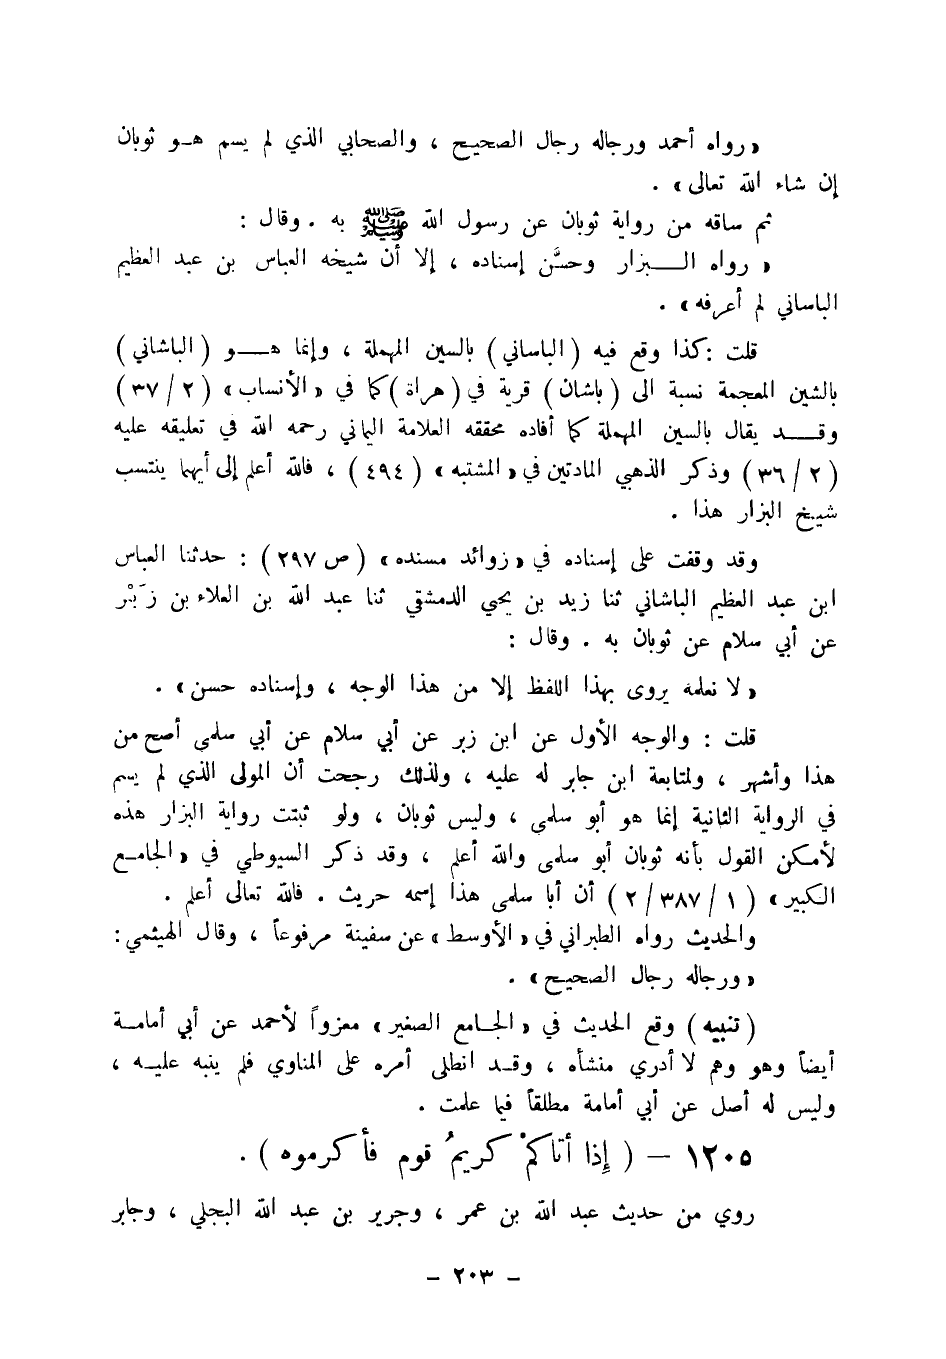 «رواه أحمد ورجاله رجال الصحيح ، والصحابي الذي لم يسم هـو ثوبان
إن شاء الله تعالى» .
ثم ساقه من رواية ثوبان عن رسول الله ﷺ به . وقال :
« رواه الـــبزار وحسَّن إسناده ، إلا أن شيخه العباس بن عبد العظيم
الباساني لم أعرفه» .
قلت :كذا وقع فيه (الباساني) بالسين المهملة ، وإنما هـــو (الباشاني)
بالشين المعجمة نسبة الى (باشان) قرية في (هراة)كما في «الأنساب» (٢/٣٧)
وقـــد يقال بالسين المهملة كما أفاده محققه العلامة اليماني رحمه الله في تعليقه عليه
(٢/٣٦) وذكر الذهبي المادتين في «المشتبه» (٤٩٤) ، فالله أعلم إلى أيهما ينتسب
شيخ البزار هذا .
وقد وقفت على إسناده في «زوائد مسنده» (ص ٢٩٧) : حدثنا العباس
ابن عبد العظيم الباشاني ثنا زيد بن يحيى الدمشقي ثنا عبد الله بن العلاء بن زَبْر
عن أبي سلام عن ثوبان به . وقال :
«لا نعلمه يروى بهذا اللفظ إلا من هذا الوجه ، وإسناده حسن» .
قلت : والوجه الأول عن ابن زبر عن أبي سلام عن أبي سلمى أصح من
هذا وأشهر ، ولمتابعة ابن جابر له عليه ، ولذلك رجحت أن المولى الذي لم يسم
في الرواية الثانية إنما هو أبو سلمى ، وليس ثوبان ، ولو ثبتت رواية البزار هذه
لأمكن القول بأنه ثوبان أبو سلمى والله أعلم ، وقد ذكر السيوطي في «الجامع
الكبير» (١/٣٨٧/٢) أن أبا سلمى هذا إسمه حريث . فالله تعالى أعلم .
والحديث رواه الطبراني في «الأوسط» عن سفينة مرفوعاً ، وقال الهيثمي:
«ورجاله رجال الصحيح» .
(تنبيه) وقع الحديث في «الجامع الصغير» معزواً لأحمد عن أبي أمامـة
أيضاً وهو وهم لا أدري منشأه ، وقـد انطلى أمره على المناوي فلم ينبه عليـه ،
وليس له أصل عن أبي أمامة مطلقاً فيما علمت .
١٢٠٥ – (إِذا أتاكمْ كريمُ قوم فأكرموه) .
روي من حديث عبد الله بن عمر ، وجرير بن عبد الله البجلي ، وجابر
- ٢٠٣ -